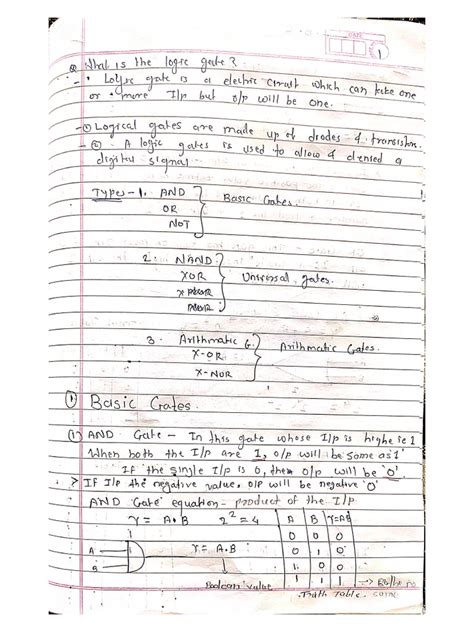 DATE
1
Q What is the logic gate?
- • Logic gate is a electric circuit which can take one
or • more I/p but o/p will be one.
- ① Logical gates are made up of diodes & transistor.
- ② • A logic gates is used to allow & densed a
digital signal
Types - 1. AND
OR
NOT
Basic Gates.
2. NAND
XOR
NOR
Universal gates.
3. Arithmatic G.
X-OR
X-NOR
Arithmatic Gates.
① Basic Gates.
① AND Gate - In this gate whose I/p is high ie 1
When both the I/p are 1, o/p will be same as 1'
If the single I/p is 0, then o/p will be '0'
> If I/p the negative value. o/p will be negative '0'
AND Gate equation - product of the I/p
Y = A•B 2² = 4
A B Y=AB
0 0 0
0 1 0
1 0 0
1 1 1
A
Y = A•B
Boolean value
Truth Table.